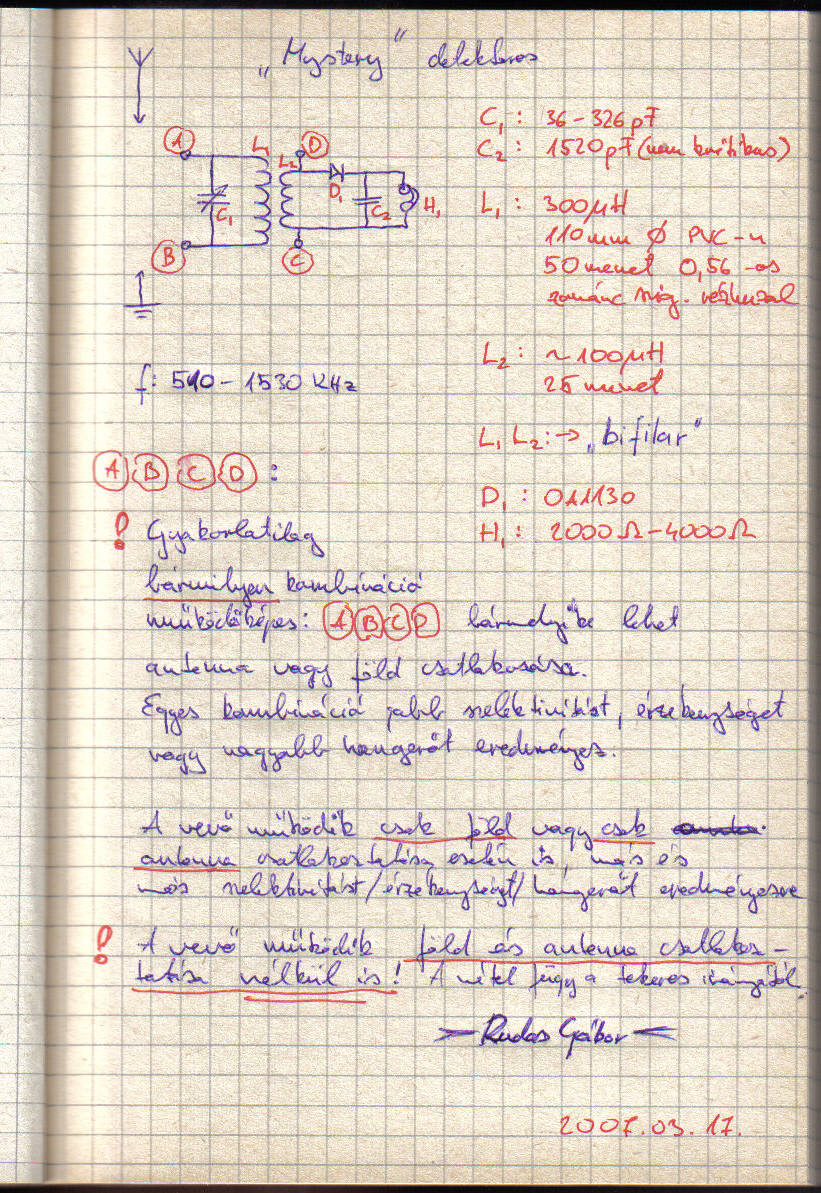 „Mystery" detektoros
A
L1
L2
D
D1
C1
C2
H1
B
C
C1: 36-326pF
C2: 1520pF (nem kritikus)
L1: 300µH
110mm Ø PVC-n
50 menet 0,56-os
zománc szig. rézhuzal
L2: ~100µH
25 menet
f: 510-1530 KHz
L1 L2: → „bifilar"
A B C D :
D1: OA1130
H1: 2000Ω-4000Ω
! Gyakorlatilag
bármilyen kombináció
működőképes: A B C D bármelyike lehet
antenna vagy föld csatlakozása.
Egyes kombináció jobb szelektivitást, érzékenységet
vagy nagyobb hangerőt eredményez.
A vevő működik csak föld vagy csak
antenna csatlakoztatása esetén is, más és
más szelektivitást/érzékenységet/hangerőt eredményezve
! A vevő működik föld és antenna csatlakoz-
tatása nélkül is! A vétel függ a tekercs irányától.
Rudas Gábor
2007.03.17.